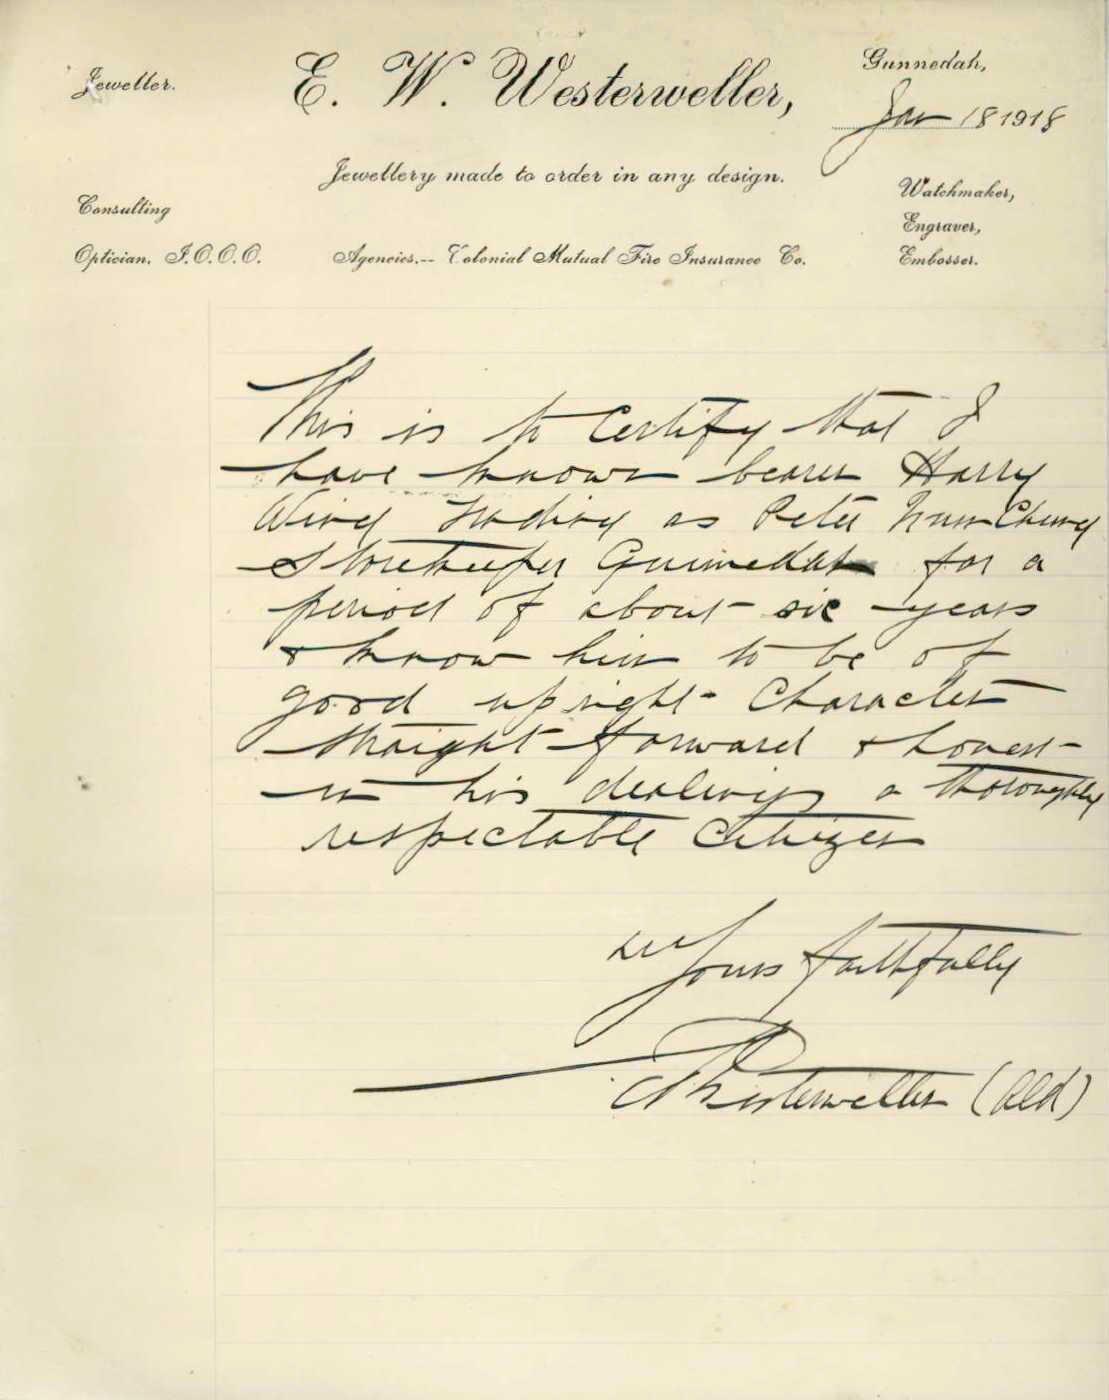 Jeweller.
E. W. Westerweller,
Gunnedah,
Jan 18 1918
Jewellery made to order in any design.
Consulting
Optician. I.O.O.O.
Agencies.-- Colonial Mutual Fire Insurance Co.
Watchmaker,
Engraver,
Embosser.
This is to Certify that I
have known bearer Harry
Wing trading as Peter Chung
Storekeeper Gunnedah for a
period of about six years
& know him to be of
good upright Character
straight forward & honest
in his dealings a thoroughly
respectable Citizen
Yours faithfully
Westerweller (Ald)